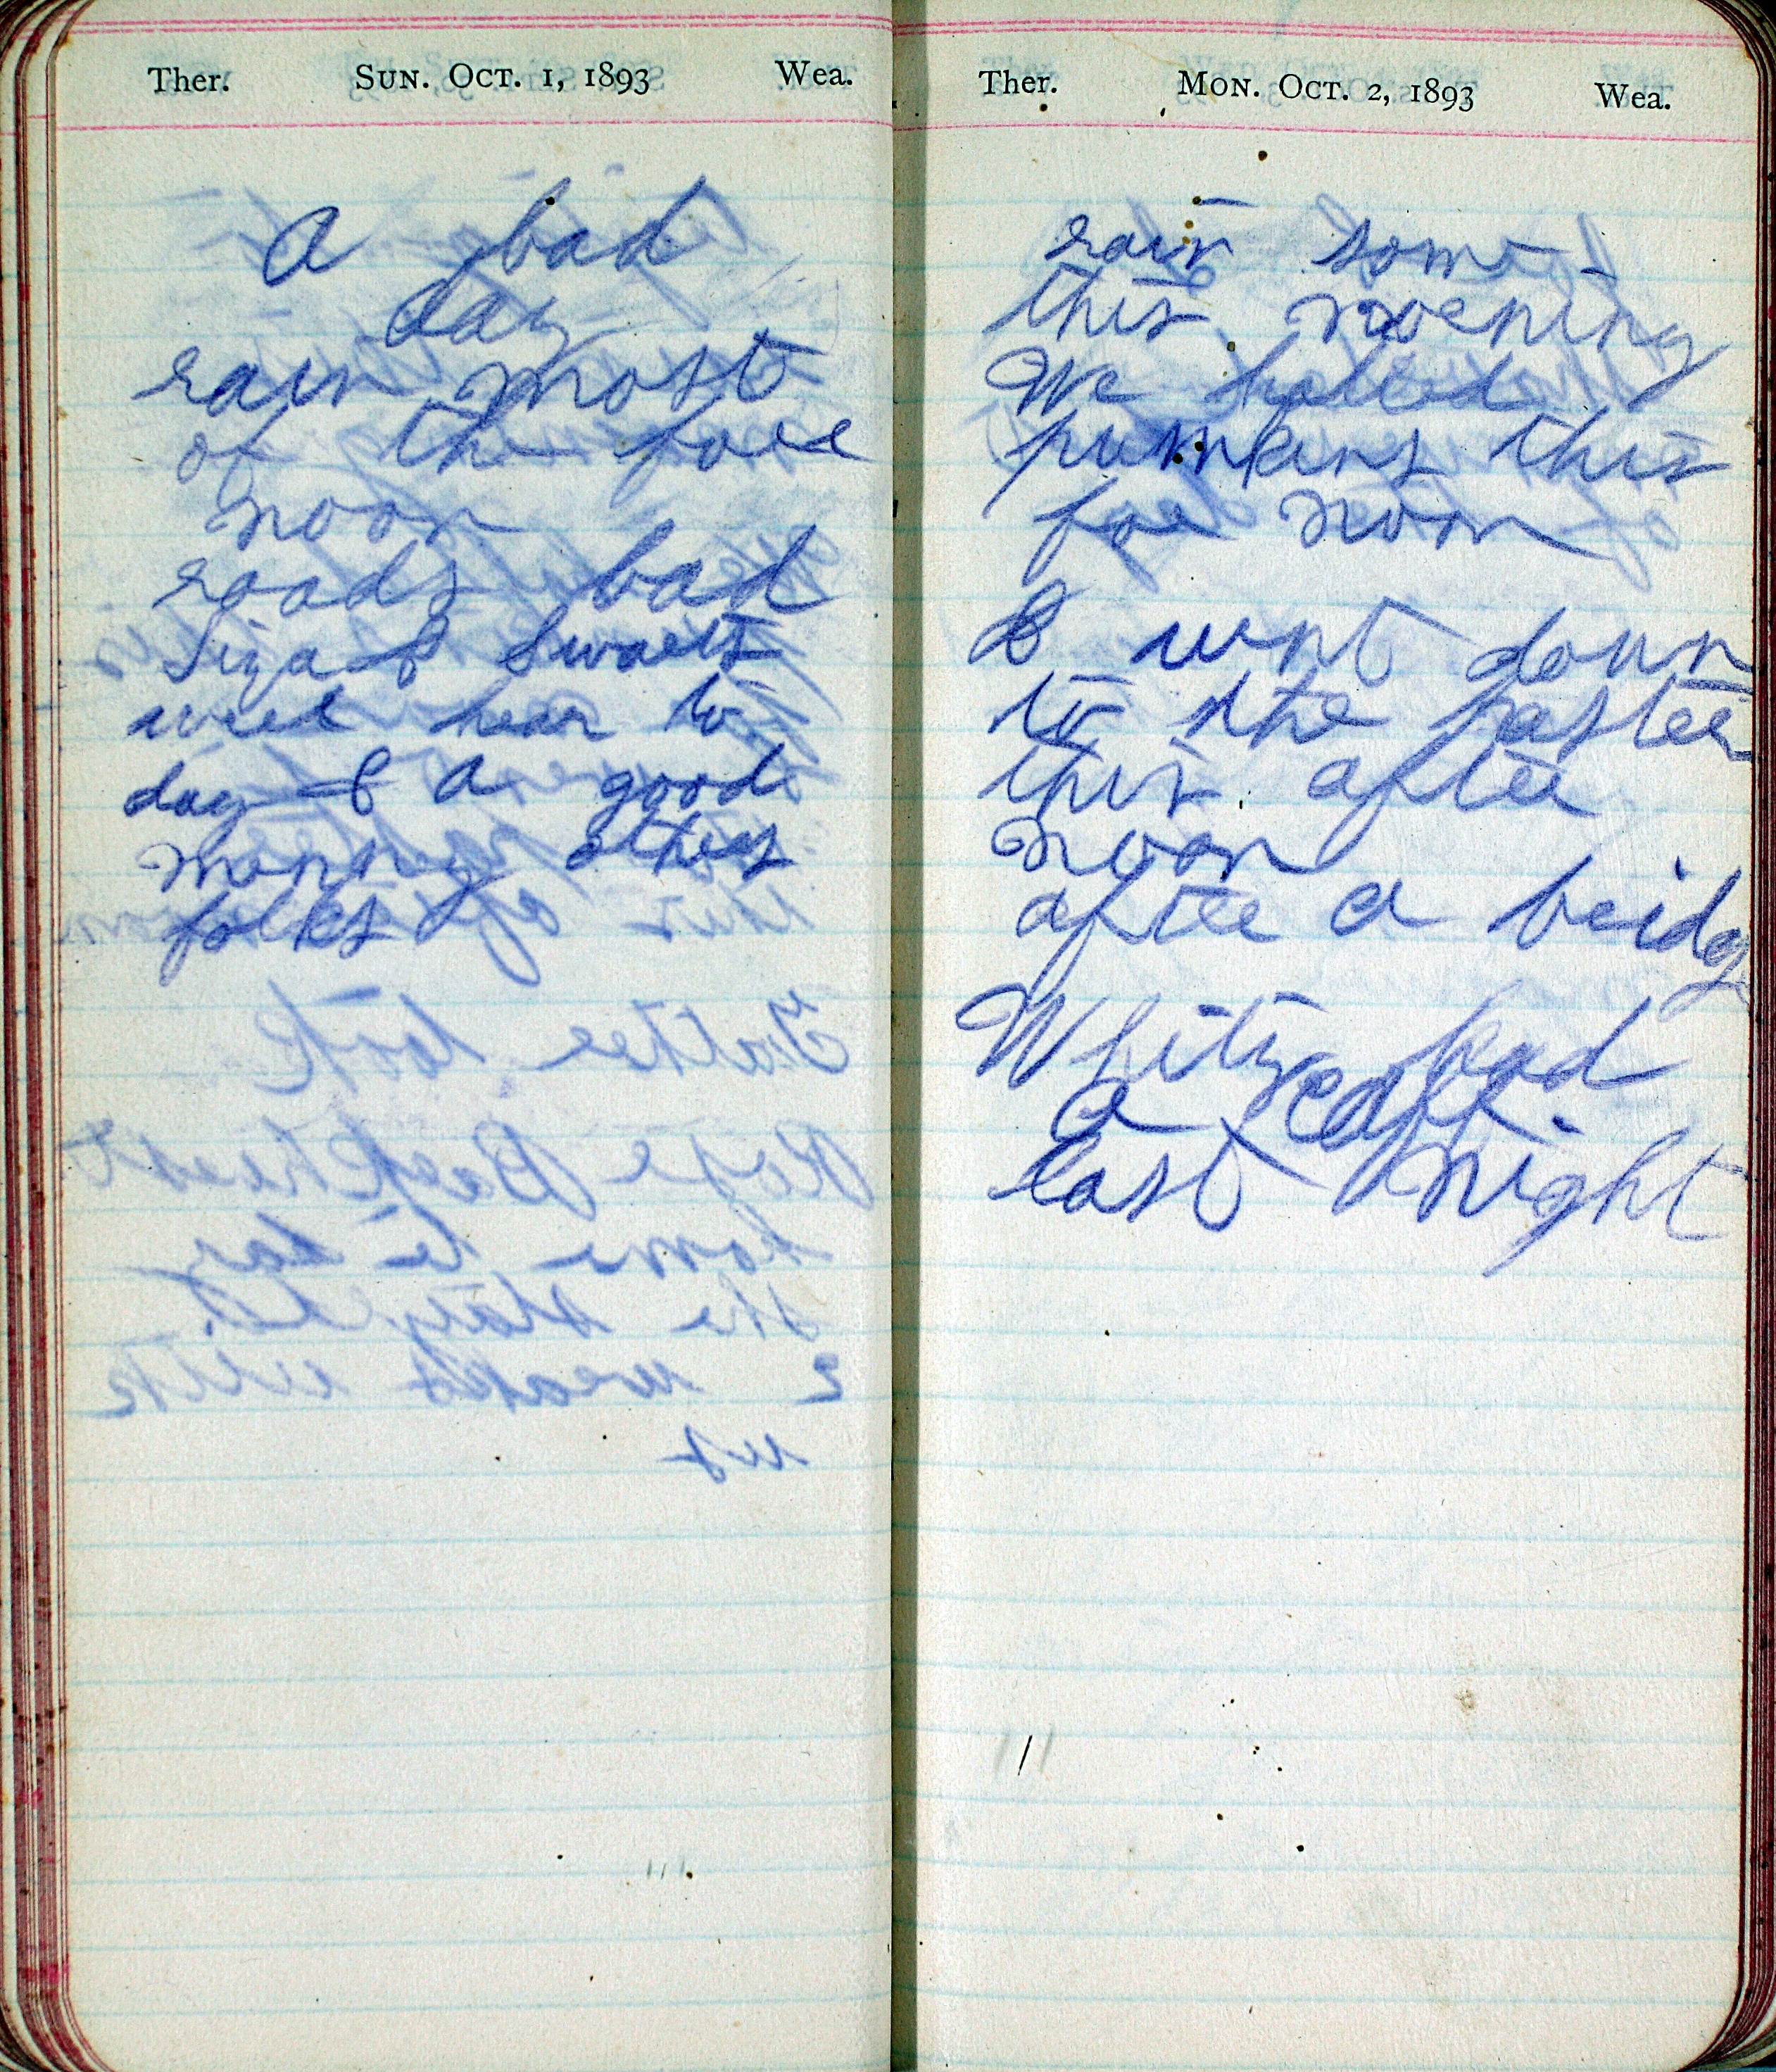 Ther. SUN. OCT. 1, 1893 Wea.
A bad
day
rain most
of the fore
noon
roads bad
Liza & Swarts
were hear to
day & a good
manny others
folks
Ther. MON. OCT. 2, 1893 Wea.
rain some
this morning
We halled
pumkins this
for noon
I went down
to the paster
this after
noon
after a bridg
Whity had
a calf
last night